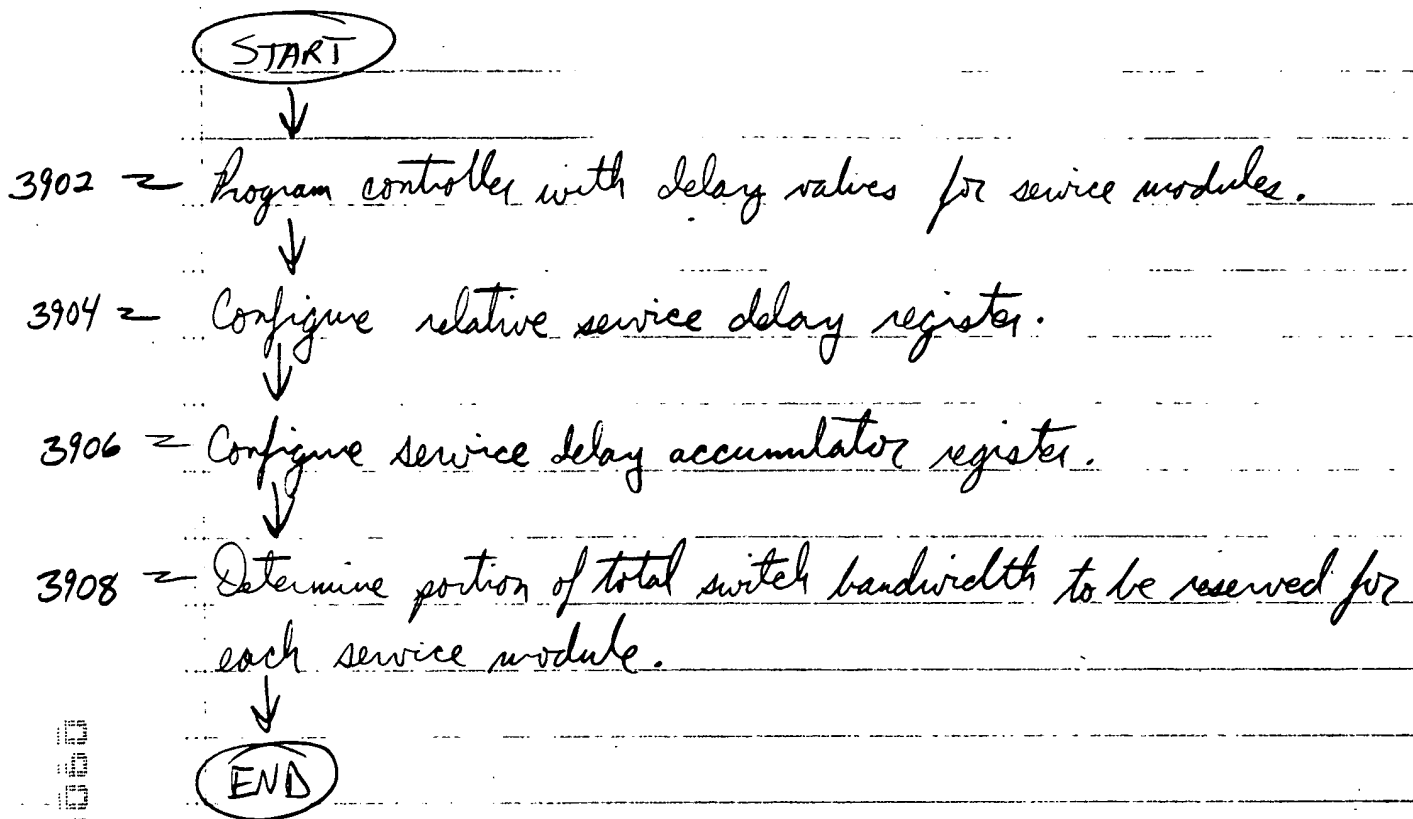 START
3902 Program controller with delay values for service modules.
3904 Configure relative service delay register.
3906 Configure service delay accumulator register.
3908 Determine portion of total switch bandwidth to be reserved for
each service module.
END